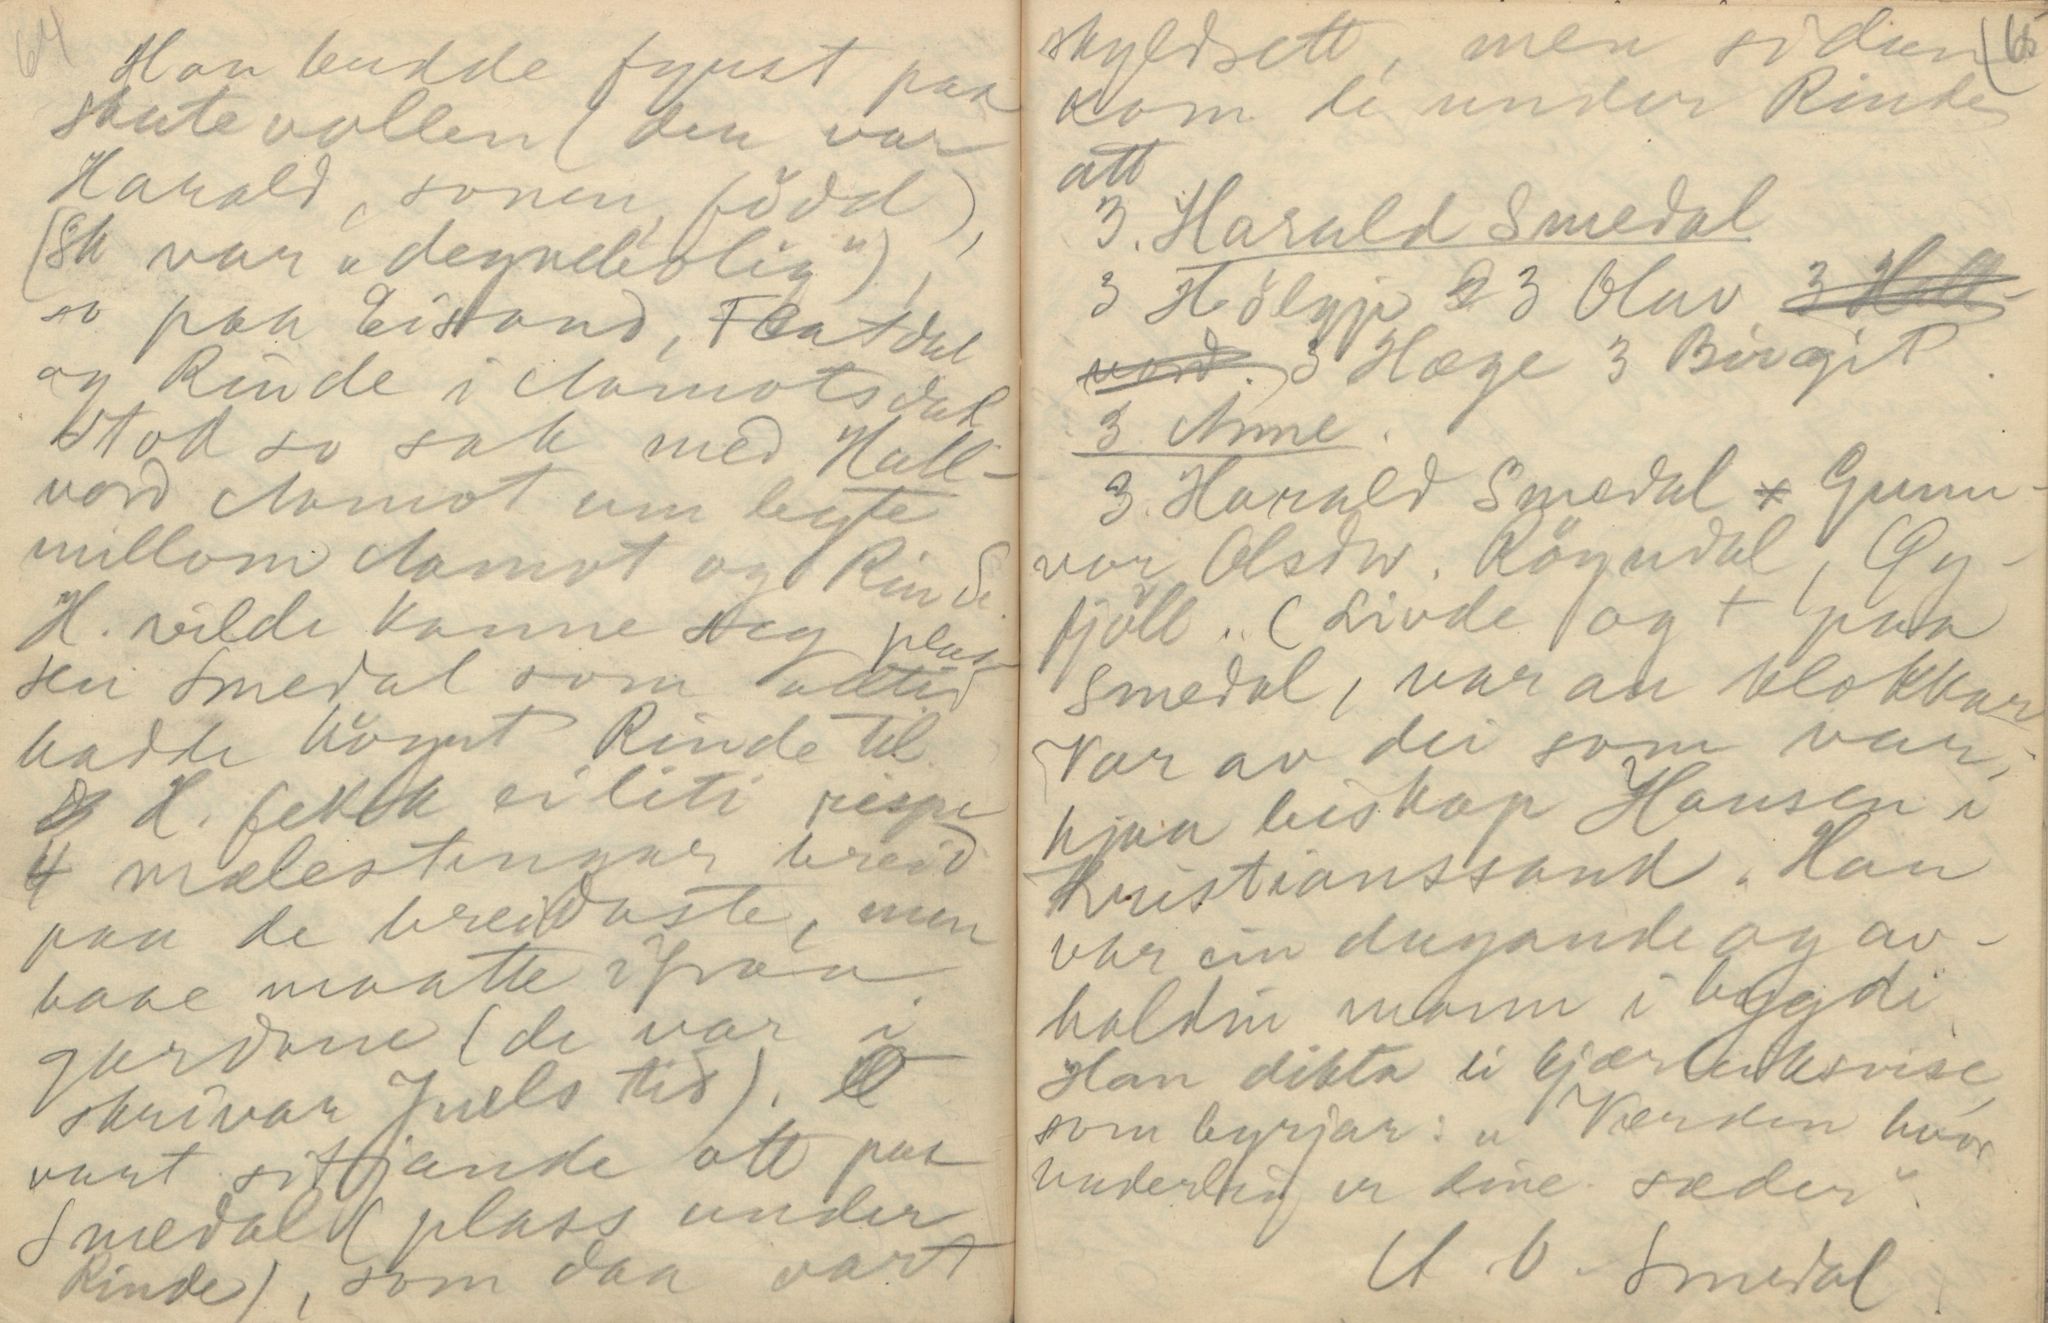 64
Han budde fyrst paa
Skutevollen (den var
Harald, sonen, född),
(Sk var "degnebolig"),
so paa Eisand, Flatdal
og Rinde i Aamotsdal
Stod so sak med Hall-
vord Aamot um byte
millom Aamot og Rinde
H. vilde kanne seg plas-
sen Smedal som alltid
hadde höyrt Rinde til.
H. fekk ei liti rispe
4 mælestengar breid
paa de breidaste, men
baae maatte ifraa
gardane (de var i
skrivar Juels tid).
vart sitjande att paa
Smedal (plass under
Rinde), som daa vart
65
skyldsett, men sidan
kom de under Rinde
att
3. Harald Smedal
3 Hölgje 3 Olav 3 Hall-
vord. 3 Hæge 3 Birgit.
3 Anne.
3. Harald Smedal * Gunn-
vor Olsdtr. Röyndal, Öy-
fjöll. (Livde og + paa
Smedal, var au klokkar
Var av dei som var
hjaa biskop Hansen i
Kristianssand. Han
var ein dugande og av-
halden mann i bygdi
Han dikta ei kjærleiksvise,
som byrjar: "Værden hvor
underlig er dine sæder".
O. Smedal.